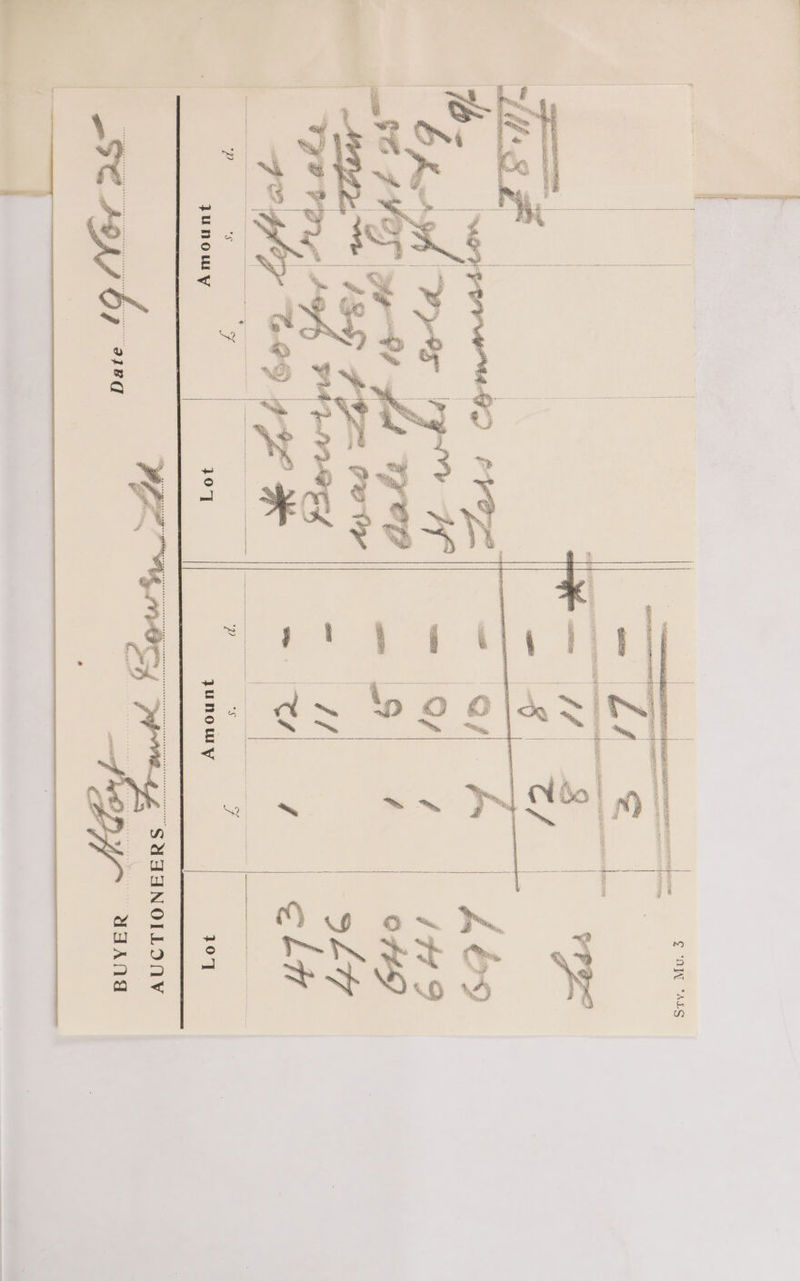 BUYER Date 19 Nov 25
AUCTIONEERS Frank
Lot Amount Lot Amount
£ s. d. £ s. d.
473 1 12 - * Lot 602 left at
476 11 - for resale
640 1 5 - was Lot in their
641 1 10 - Sale of Sept 25
697 7 10 - It was sold for £9.9.
Less commission
12 8 - £8.11/-
Less 8 11 - *
3 17 -
Stv. Mu. 3